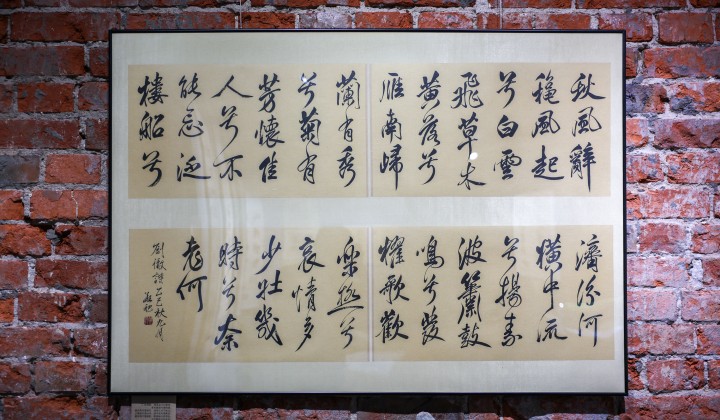 秋風辭
穐風起
兮白雲
飛草木
黄落兮
雁南歸
蘭有秀
兮菊有
芳懷佳
人兮不
能忘泛
樓船兮
濟汾河
橫中流
兮揚素
波簫鼓
鳴兮發
櫂歌歡
樂極兮
哀情多
少壯幾
時兮奈
老何
劉徹 乙巳秋九月